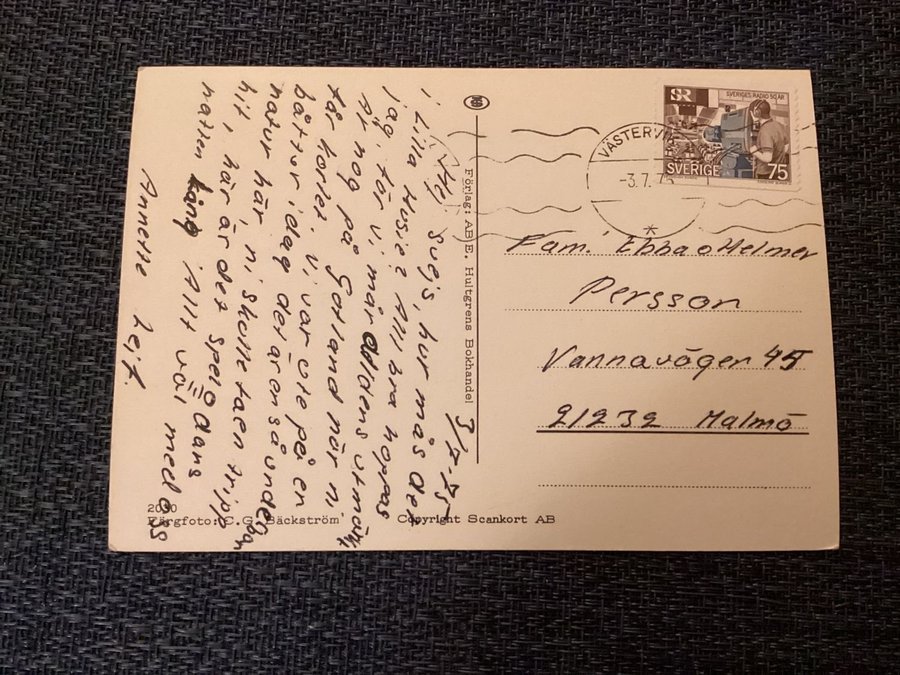 3/7-75
Hej svejs, hur mås det
i Lilla Husie? Allt bra hoppas
jag, för vi mår alldens utmärkt,
Är nog på Gotland när ni
får kortet. Vi var ute på en
båttur idag det är en så underbar
natur här, ni skulle ta en tripp
hit, här är det spel o dans
natten lång Allt väl med oss
Annette Leif.
Förlag: AB E. Hultgrens Bokhandel
SR
SVERIGES RADIO 50 ÅR
SVERIGE 75
VÄSTERVI
-3.7.75
Fam. Ebba o Helmer
Persson
Vannavägen 45
21232 Malmö
Färgfoto: C. G. Bäckström
Copyright Scankort AB